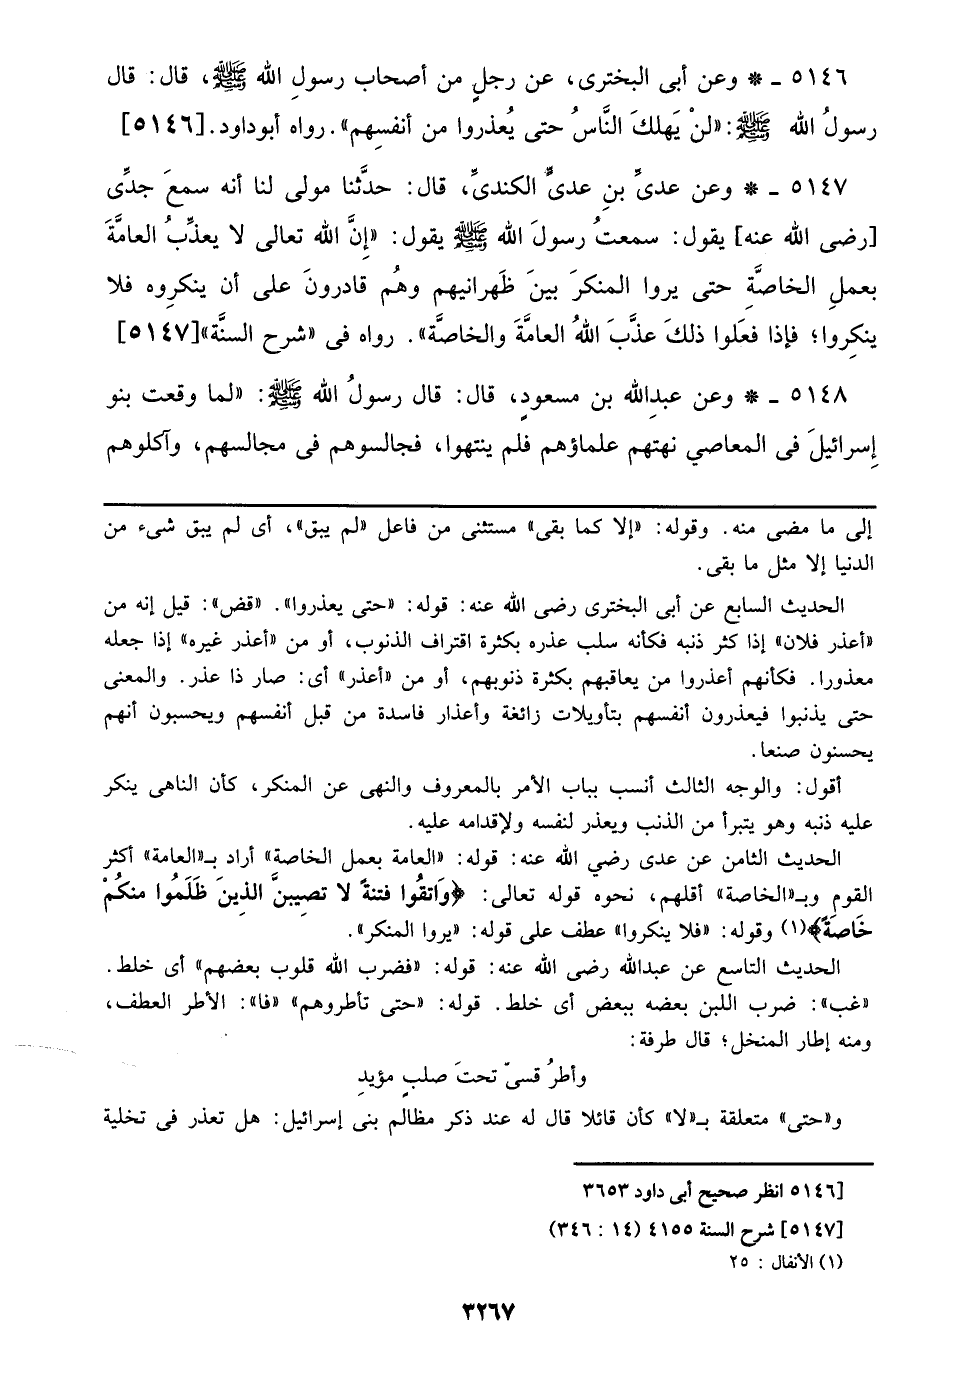 ٥١٤٦ ـ * وعن أبى البخترى، عن رجلٍ من أصحاب رسولِ الله ﷺ، قال: قال
رسولُ الله ﷺ: «لنْ يَهلكَ النَّاسُ حتى يُعذروا من أنفسِهم». رواه أبوداود.[٥١٤٦]
٥١٤٧ ـ * وعن عدىِّ بنِ عدىٍّ الكندىِّ، قال: حدَّثنا مولى لنا أنه سمعَ جدِّى
[رضى الله عنه] يقول: سمعتُ رسولَ الله ﷺ يقول: «إِنَّ الله تعالى لا يعذِّبُ العامَّةَ
بعملِ الخاصَّةِ حتى يروا المنكرَ بينَ ظَهرانيهم وهُم قادرونَ على أن ينكرِوه فلا
ينكِروا؛ فإذا فعَلوا ذلكَ عذَّبَ اللهُ العامَّةَ والخاصَّة». رواه فى «شرح السنَّة»[٥١٤٧]
٥١٤٨ ـ * وعن عبدِالله بن مسعودٍ، قال: قال رسولُ الله ﷺ: «لما وقعت بنو
إِسرائيلَ فى المعاصي نهتهم علماؤهم فلم ينتهوا، فجالسوهم فى مجالسهم، وآكلوهم
إلى ما مضى منه. وقوله: «إلا كما بقى» مستثنى من فاعل «لم يبق»، أى لم يبق شىء من
الدنيا إلا مثل ما بقى.
الحديث السابع عن أبى البخترى رضى الله عنه: قوله: «حتى يعذروا». «قض»: قيل إنه من
«أعذر فلان» إذا كثر ذنبه فكأنه سلب عذره بكثرة اقتراف الذنوب، أو من «أعذر غيره» إذا جعله
معذورا. فكأنهم أعذروا من يعاقبهم بكثرة ذنوبهم، أو من «أعذر» أى: صار ذا عذر. والمعنى
حتى يذنبوا فيعذرون أنفسهم بتأويلات زائغة وأعذار فاسدة من قبل أنفسهم ويحسبون أنهم
يحسنون صنعا.
أقول: والوجه الثالث أنسب بباب الأمر بالمعروف والنهى عن المنكر، كأن الناهى ينكر
عليه ذنبه وهو يتبرأ من الذنب ويعذر لنفسه ولإقدامه عليه.
الحديث الثامن عن عدى رضي الله عنه: قوله: «العامة بعمل الخاصة» أراد بـ«العامة» أكثر
القوم وبـ«الخاصة» أقلهم، نحوه قوله تعالى: ﴿وَاتقُوا فتنةً لا تصيبنَّ الذينَ ظَلَمُوا منكُمْ
خَاصَةً﴾(١) وقوله: «فلا ينكروا» عطف على قوله: «يروا المنكر».
الحديث التاسع عن عبدالله رضى الله عنه: قوله: «فضرب الله قلوب بعضهم» أى خلط.
«غب»: ضرب اللبن بعضه ببعض أى خلط. قوله: «حتى تأطروهم» «فا»: الأطر العطف،
ومنه إطار المنخل؛ قال طرفة:
وأطرُ قسىّ تحتَ صلبٍ مؤيدِ
و«حتى» متعلقة بـ«لا» كأن قائلا قال له عند ذكر مظالم بنى إسرائيل: هل تعذر فى تخلية
[٥١٤٦ انظر صحيح أبى داود ٣٦٥٣
[٥١٤٧] شرح السنة ٤١٥٥ (١٤ : ٣٤٦)
(١) الأنفال : ٢٥
٣٢٦٧